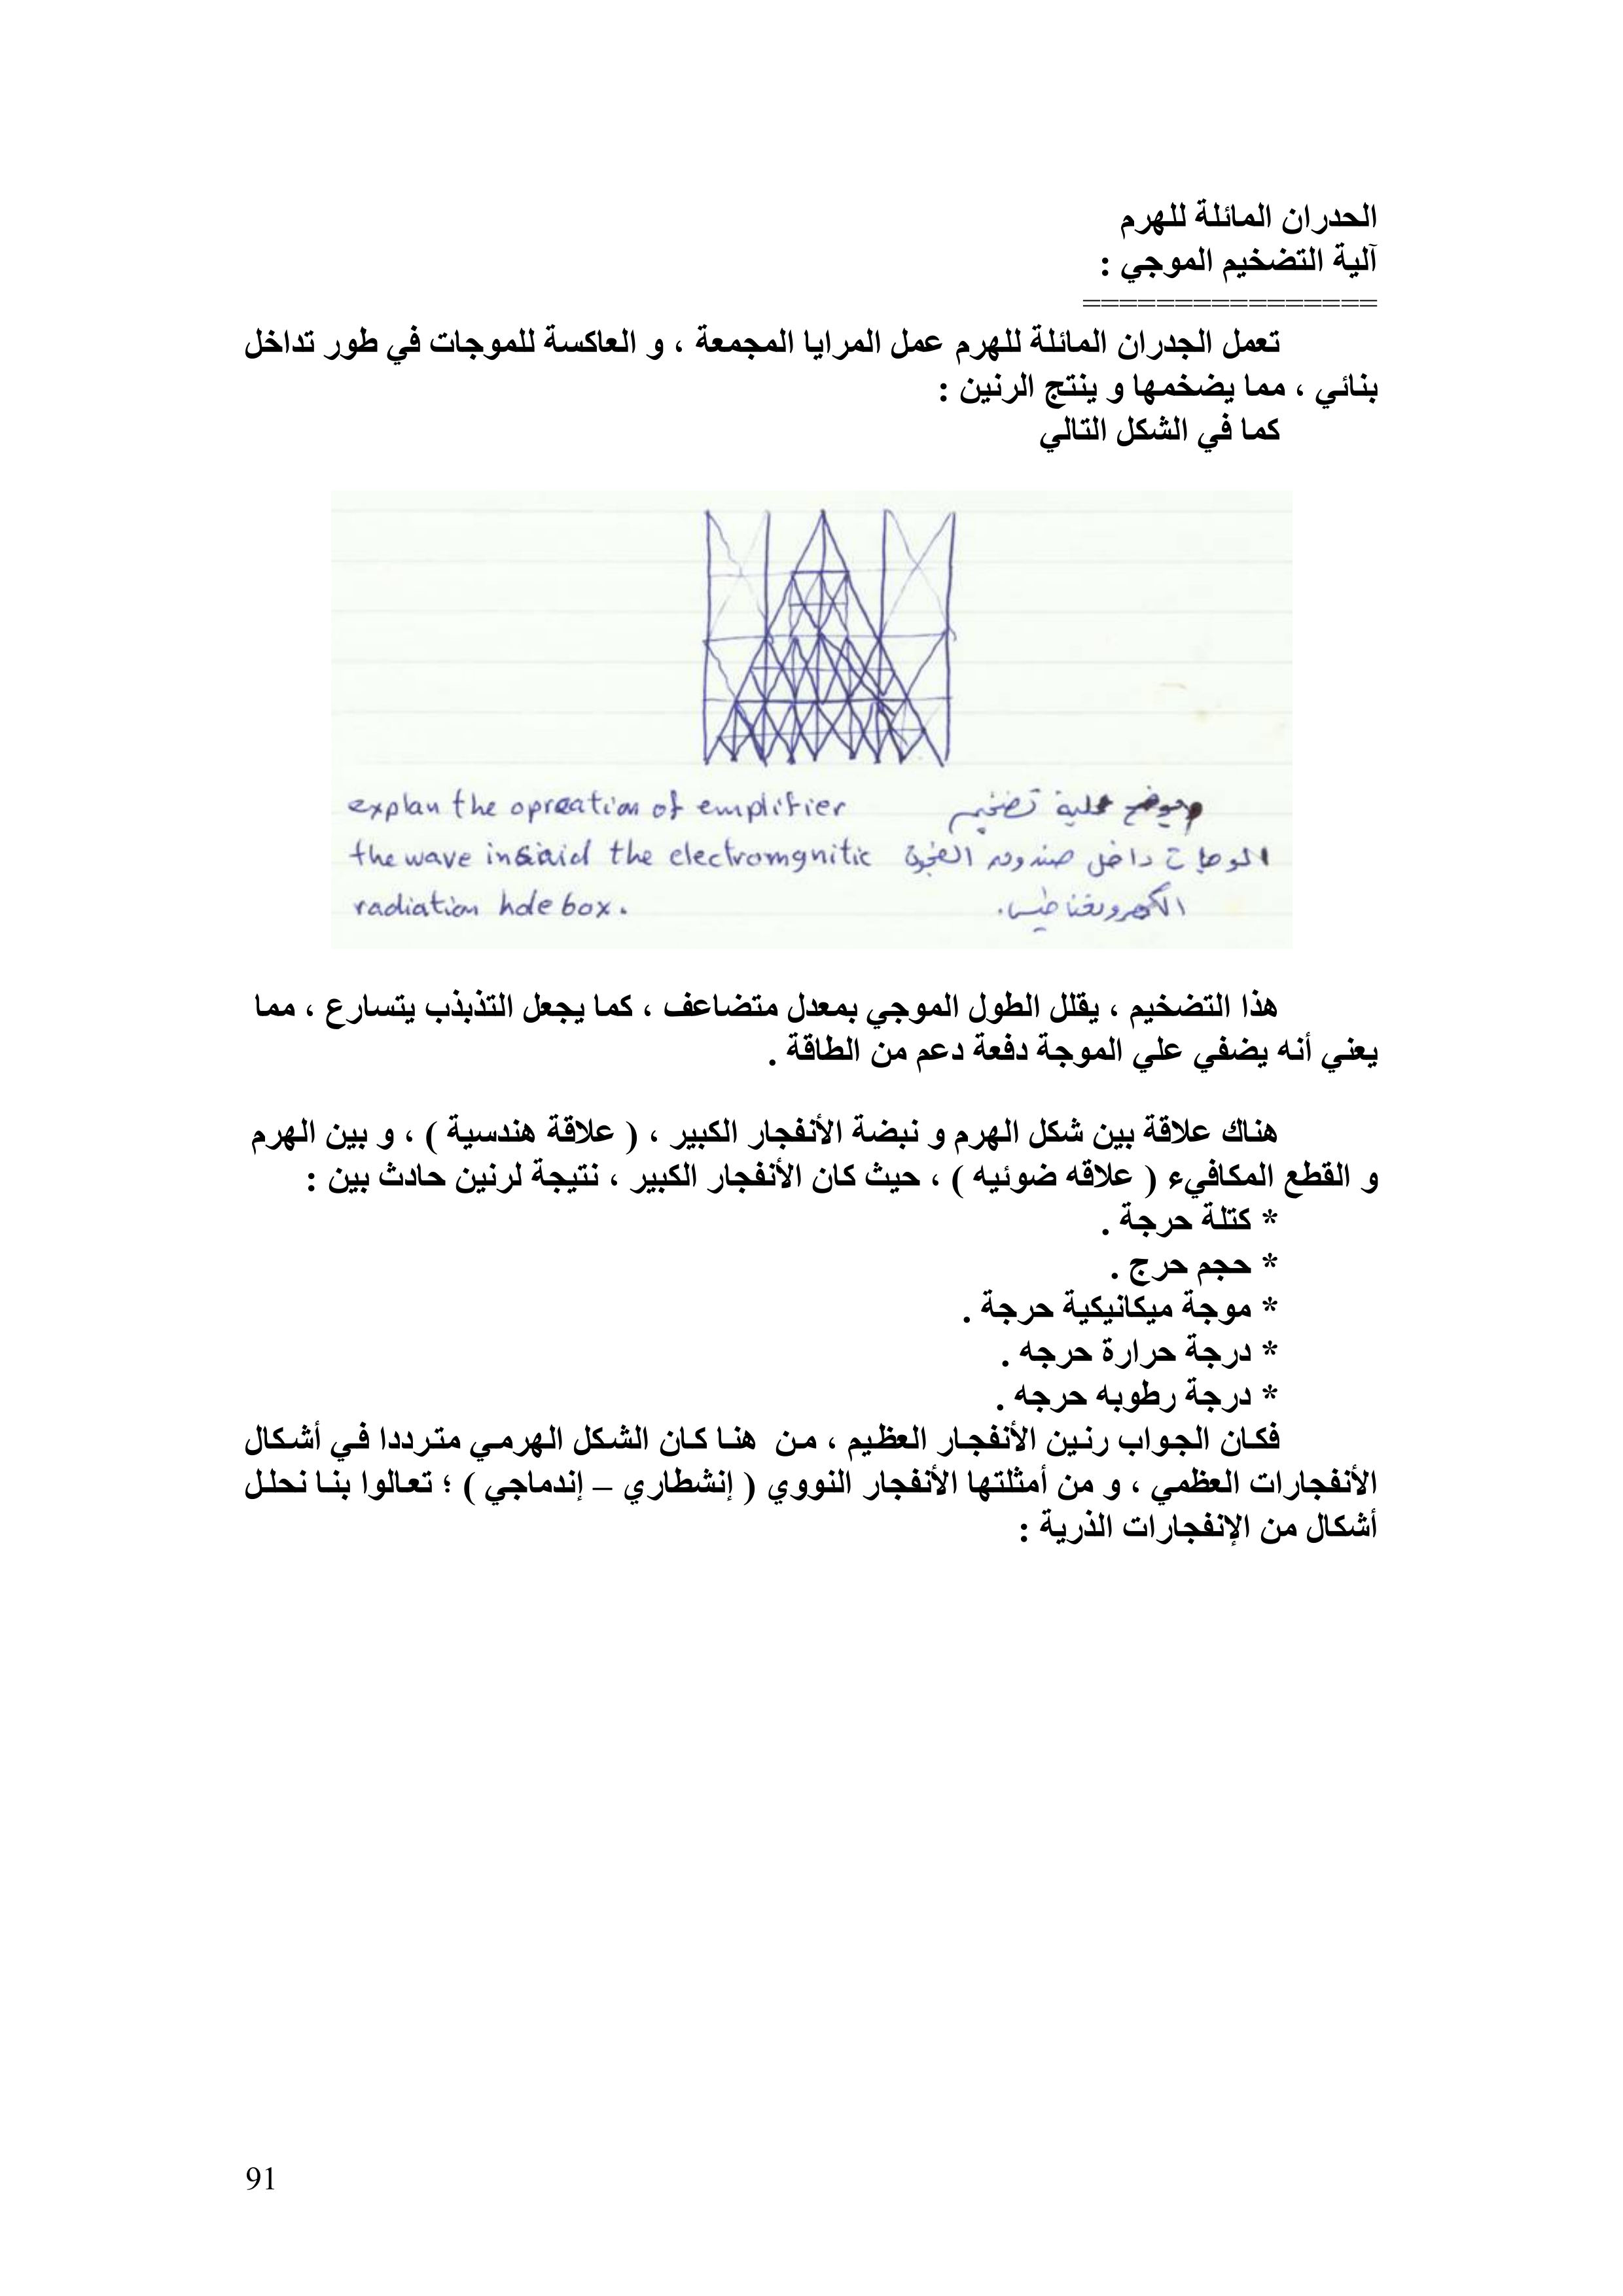 الحدران المائلة للهرم
آلية التضخيم الموجي :
================
تعمل الجدران المائلة للهرم عمل المرايا المجمعة ، و العاكسة للموجات في طور تداخل
بنائي ، مما يضخمها و ينتج الرنين :
كما في الشكل التالي
explan the opreation of emplifier
the wave insiaid the electromgnitic
radiation hole box.
يوضح عملية تضخيم
الوجات داخل صندوق الفجوة
الكهرومغناطيسي.
هذا التضخيم ، يقلل الطول الموجي بمعدل متضاعف ، كما يجعل التذبذب يتسارع ، مما
يعني أنه يضفي علي الموجة دفعة دعم من الطاقة .
هناك علاقة بين شكل الهرم و نبضة الأنفجار الكبير ، ( علاقة هندسية ) ، و بين الهرم
و القطع المكافيء ( علاقه ضوئيه ) ، حيث كان الأنفجار الكبير ، نتيجة لرنين حادث بين :
* كتلة حرجة .
* حجم حرج .
* موجة ميكانيكية حرجة .
* درجة حرارة حرجه .
* درجة رطوبه حرجه .
فكان الجواب رنين الأنفجار العظيم ، من هنا كان الشكل الهرمي مترددا في أشكال
الأنفجارات العظمي ، و من أمثلتها الأنفجار النووي ( إنشطاري – إندماجي ) ؛ تعالوا بنا نحلل
أشكال من الإنفجارات الذرية :
91